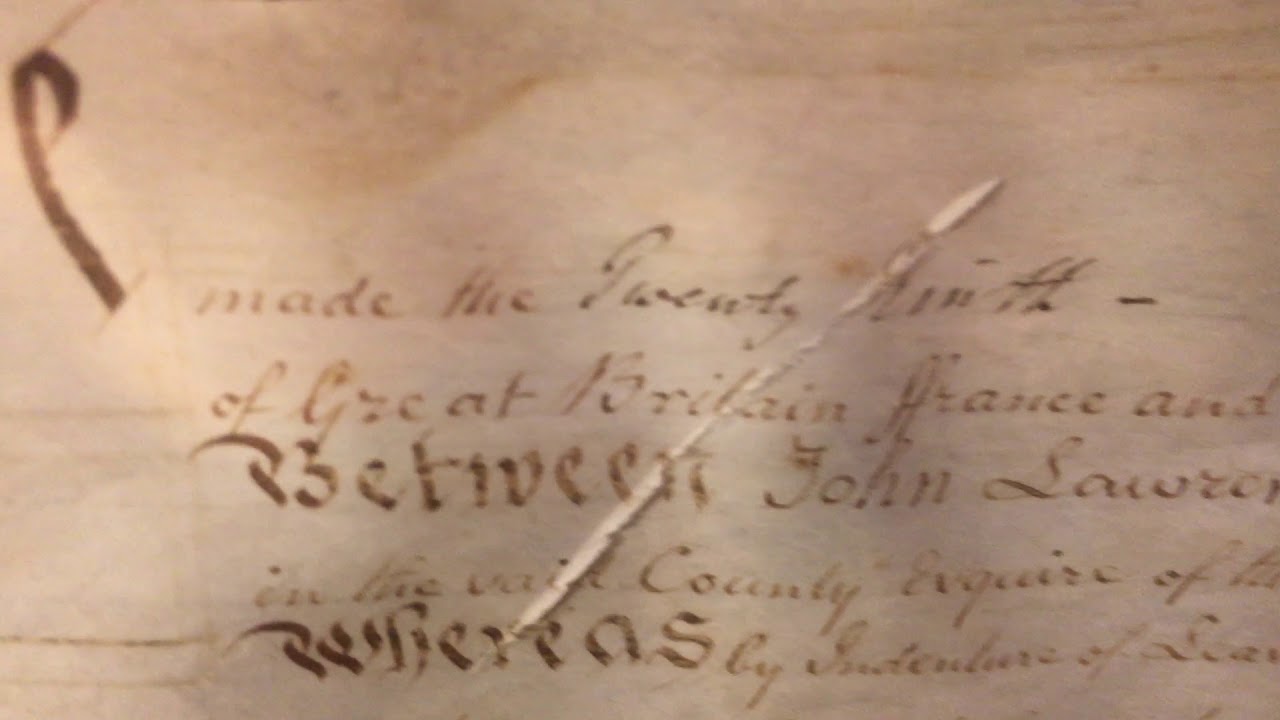 made the Twenty Ninth -
of Great Britain ffrance and
Between John Lawren
in the said County Esquire of the
Whereas by Indenture of Lea